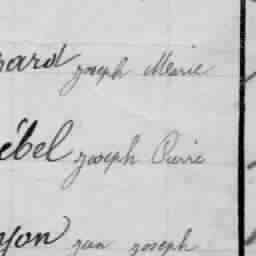 rard joseph Marie
ébel joseph Pierre
yon jean joseph